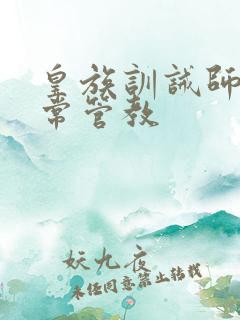 皇族訓誡師
常管教
妖九夜
未经同意禁止转载